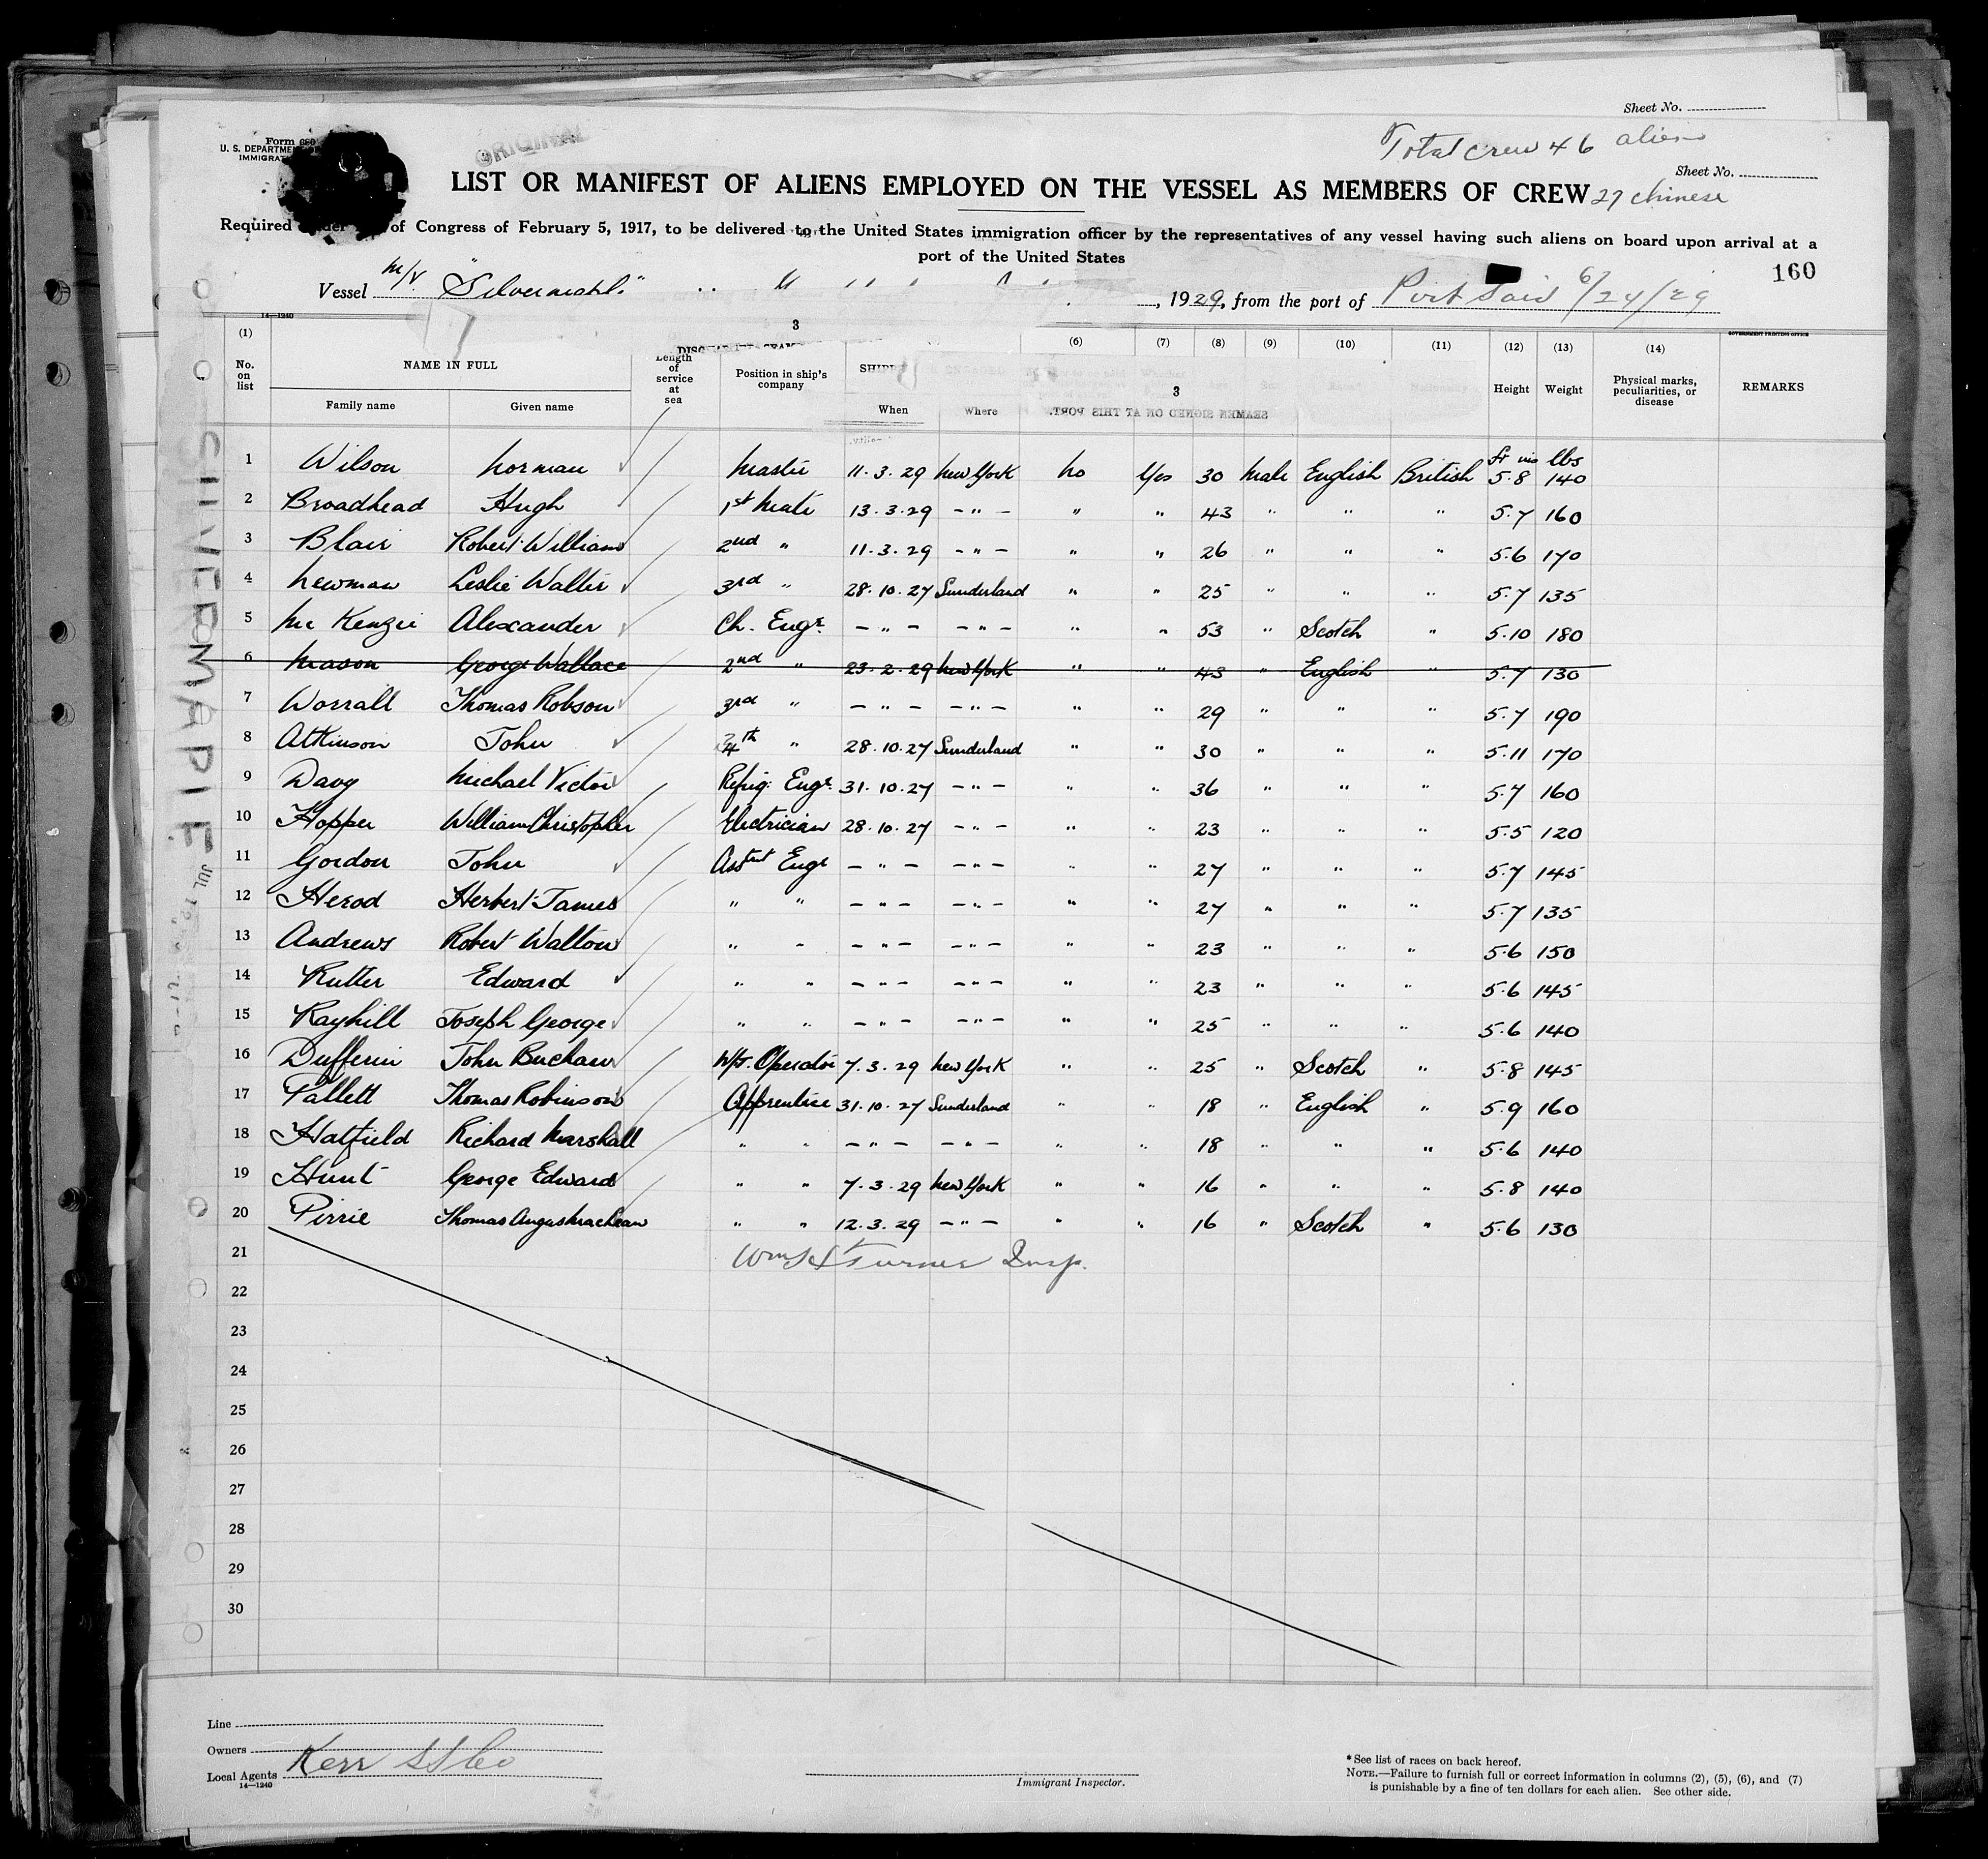 Sheet No.
Total crew 46 aliens
Form 680
U. S. DEPARTME
IMMIGRAT
ORIGINAL
Sheet No.
LIST OR MANIFEST OF ALIENS EMPLOYED ON THE VESSEL AS MEMBERS OF CREW 27 Chinese
Required under of Congress of February 5, 1917, to be delivered to the United States immigration officer by the representatives of any vessel having such aliens on board upon arrival at a
port of the United States
160
Vessel M/V "Silvermaple" , 1929, from the port of Port Said 6/24/29
14—1240
3
(1) (6) (7) (8) (9) (10) (11) (12) (13) (14)
GOVERNMENT PRINTING OFFICE
No. on list NAME IN FULL Length of service at sea Position in ship's company SHIPP Height Weight Physical marks, peculiarities, or disease REMARKS
3
Family name Given name When Where SEAMEN SIGNED ON AT THIS PORT.
ft ins lbs
1 Wilson Norman Master 11.3.29 New York No Yes 30 Male English British 5.8 140
2 Broadhead Hugh 1st Mate 13.3.29 – " – " " 43 " " " 5.7 160
3 Blair Robert William 2nd " 11.3.29 – " – " " 26 " " " 5.6 170
4 Newman Leslie Walter 3rd " 28.10.27 Sunderland " " 25 " " " 5.7 135
5 Mc Kenzie Alexander Ch. Engr. – " – – " – " " 53 " Scotch " 5.10 180
6 Mason George Wallace 2nd " 23.2.29 New York " " 43 " English " 5.7 130
7 Worrall Thomas Robson 3rd " – " – – " – " " 29 " " " 5.7 190
8 Atkinson John 4th " 28.10.27 Sunderland " " 30 " " " 5.11 170
9 Davy Michael Victor Refrig. Engr. 31.10.27 – " – " " 36 " " " 5.7 160
10 Hopper William Christopher Electrician 28.10.27 – " – " " 23 " " " 5.5 120
11 Gordon John Asstnt Engr – " – – " – " " 27 " " " 5.7 145
12 Herod Herbert James " " – " – – " – " " 27 " " " 5.7 135
13 Andrews Robert Walton " " – " – – " – " " 23 " " " 5.6 150
14 Rutter Edward " " – " – – " – " " 23 " " " 5.6 145
15 Rayhill Joseph George " " – " – – " – " " 25 " " " 5.6 140
16 Dufferin John Buchan W/T. Operator 7.3.29 New York " " 25 " Scotch " 5.8 145
17 Pallett Thomas Robinson Apprentice 31.10.27 Sunderland " " 18 " English " 5.9 160
18 Hatfield Richard Marshall " " – " – – " – " " 18 " " " 5.6 140
19 Hunt George Edward " " 7.3.29 New York " " 16 " " " 5.8 140
20 Pirrie Thomas Angus MacLean " " 12.3.29 – " – " " 16 " Scotch " 5.6 130
21 Turner Insp.
22
23
24
25
26
27
28
29
30
SILVERMAPLE JUL 12
Line
Owners
Local Agents Kerr SS Co
14—1240
Immigrant Inspector.
* See list of races on back hereof.
NOTE.—Failure to furnish full or correct information in columns (2), (5), (6), and (7)
is punishable by a fine of ten dollars for each alien. See other side.